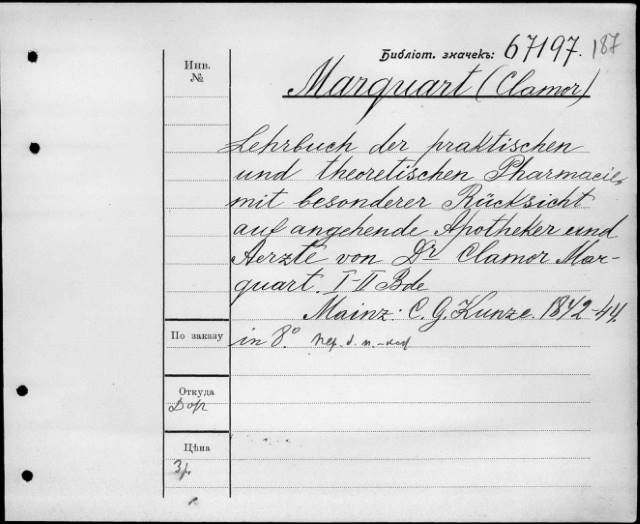 Библіот. значекъ: 67197. 187
Инв.
№
Marquart (Clamor)
Lehrbuch der praktischen
und theoretischen Pharmacie,
mit besonderer Rücksicht
auf angehende Apotheker und
Aerzte von Dr Clamor Mar-
quart. I-II Bde
Mainz: C. G. Kunze. 1842-44.
По заказу
in 8°.
Откуда
Дар
Цѣна
3р